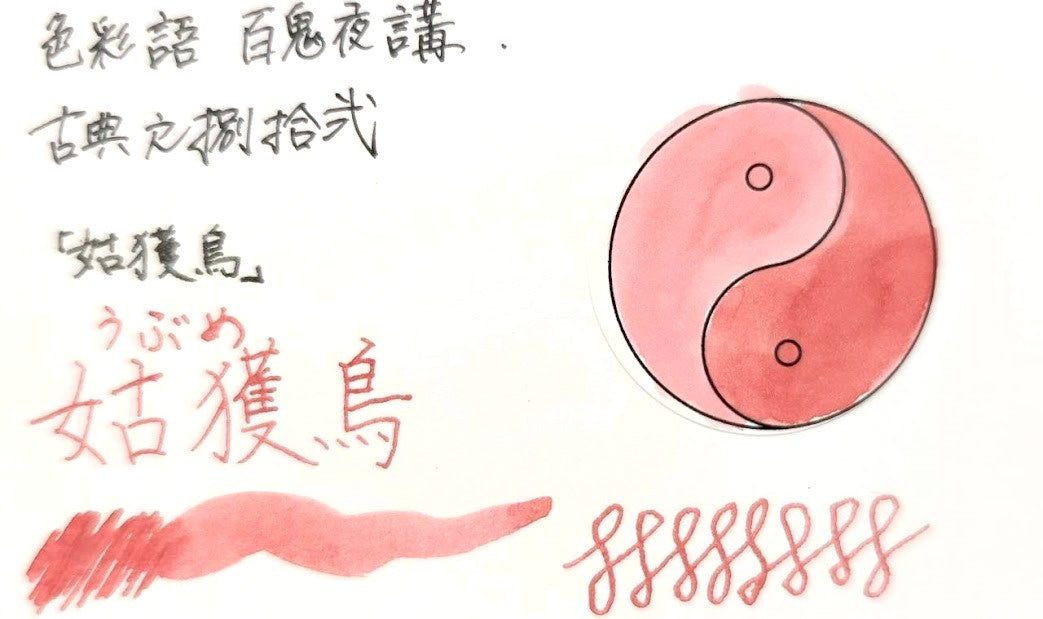 色彩語 百鬼夜講.
古典之捌拾弐
「姑獲鳥」
うぶめ
姑獲鳥